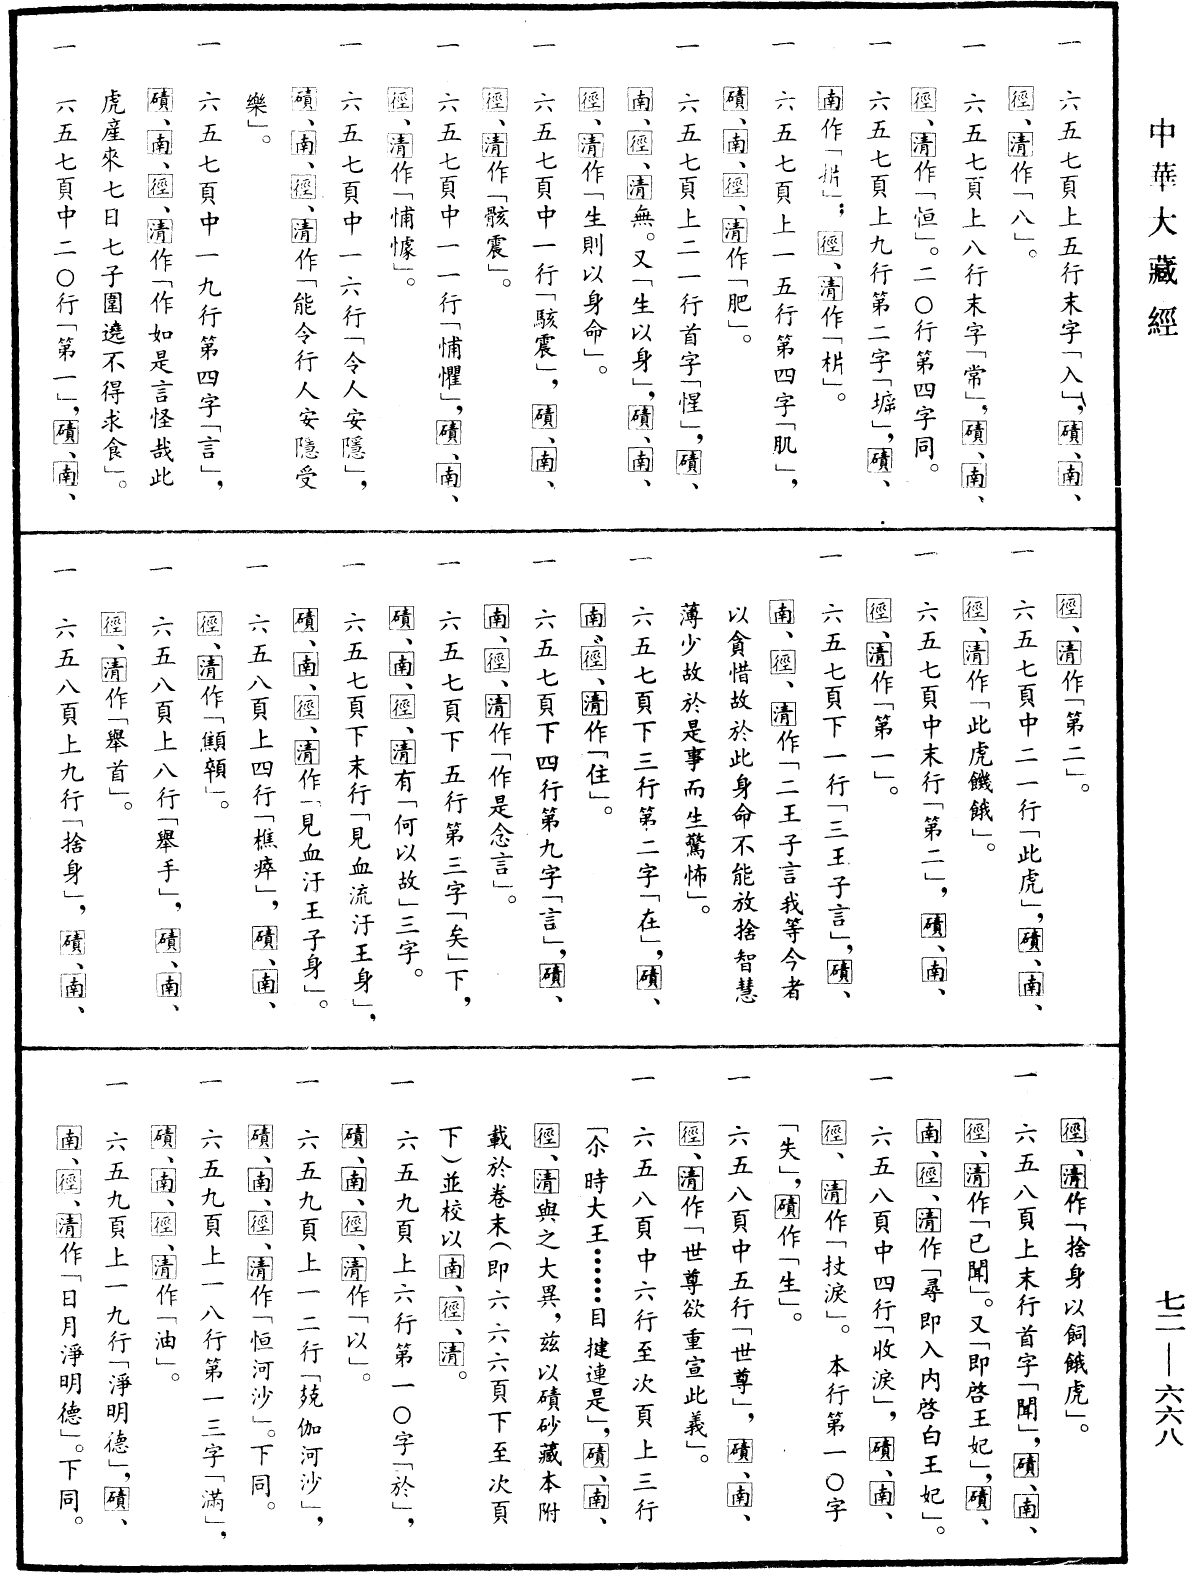 中華大藏經
七二—六六八
一 六五七頁上五行末字「入」，磧、南、
徑、清作「八」。
一 六五七頁上八行末字「常」，磧、南、
徑、清作「恒」。二〇行第四字同。
一 六五七頁上九行第二字「墟」，磧、
南作「㭊」；徑、清作「枿」。
一 六五七頁上一五行第四字「肌」，
磧、南、徑、清作「肥」。
一 六五七頁上二一行首字「惺」，磧、
南、徑、清無。又「生以身」，磧、南、
徑、清作「生則以身命」。
一 六五七頁中一行「駭震」，磧、南、
徑、清作「骸震」。
一 六五七頁中一一行「怖懼」，磧、南、
徑、清作「怖懅」。
一 六五七頁中一六行「令人安隱」，
磧、南、徑、清作「能令行人安隱受
樂」。
一 六五七頁中一九行第四字「言」，
磧、南、徑、清作「作如是言怪哉此
虎產來七日七子圍遶不得求食」。
一 六五七頁中二〇行「第一」，磧、南、
徑、清作「第二」。
一 六五七頁中二一行「此虎」，磧、南、
徑、清作「此虎饑餓」。
一 六五七頁中末行「第二」，磧、南、
徑、清作「第一」。
一 六五七頁下一行「三王子言」，磧、
南、徑、清作「二王子言我等今者
以貪惜故於此身命不能放捨智慧
薄少故於是事而生驚怖」。
一 六五七頁下三行第二字「在」，磧、
南、徑、清作「住」。
一 六五七頁下四行第九字「言」，磧、
南、徑、清作「作是念言」。
一 六五七頁下五行第三字「矣」下，
磧、南、徑、清有「何以故」三字。
一 六五七頁下末行「見血流汙王身」，
磧、南、徑、清作「見血汙王子身」。
一 六五八頁上四行「樵瘁」，磧、南、
徑、清作「顦顇」。
一 六五八頁上八行「舉手」，磧、南、
徑、清作「舉首」。
一 六五八頁上九行「捨身」，磧、南、
徑、清作「捨身以飼餓虎」。
一 六五八頁上末行首字「聞」，磧、南、
徑、清作「已聞」。又「即啓王妃」，磧、
南、徑、清作「尋即入內啓白王妃」。
一 六五八頁中四行「收淚」，磧、南、
徑、清作「抆淚」。本行第一〇字
「失」，磧作「生」。
一 六五八頁中五行「世尊」，磧、南、
徑、清作「世尊欲重宣此義」。
一 六五八頁中六行至次頁上三行
「尒時大王……目揵連是」，磧、南、
徑、清與之大異，茲以磧砂藏本附
載於卷末（即六六六頁下至次頁
下）並校以南、徑、清。
一 六五九頁上六行第一〇字「於」，
磧、南、徑、清作「以」。
一 六五九頁上一二行「兢伽河沙」，
磧、南、徑、清作「恒河沙」。下同。
一 六五九頁上一八行第一三字「滿」，
磧、南、徑、清作「油」。
一 六五九頁上一九行「淨明德」，磧、
南、徑、清作「日月淨明德」。下同。